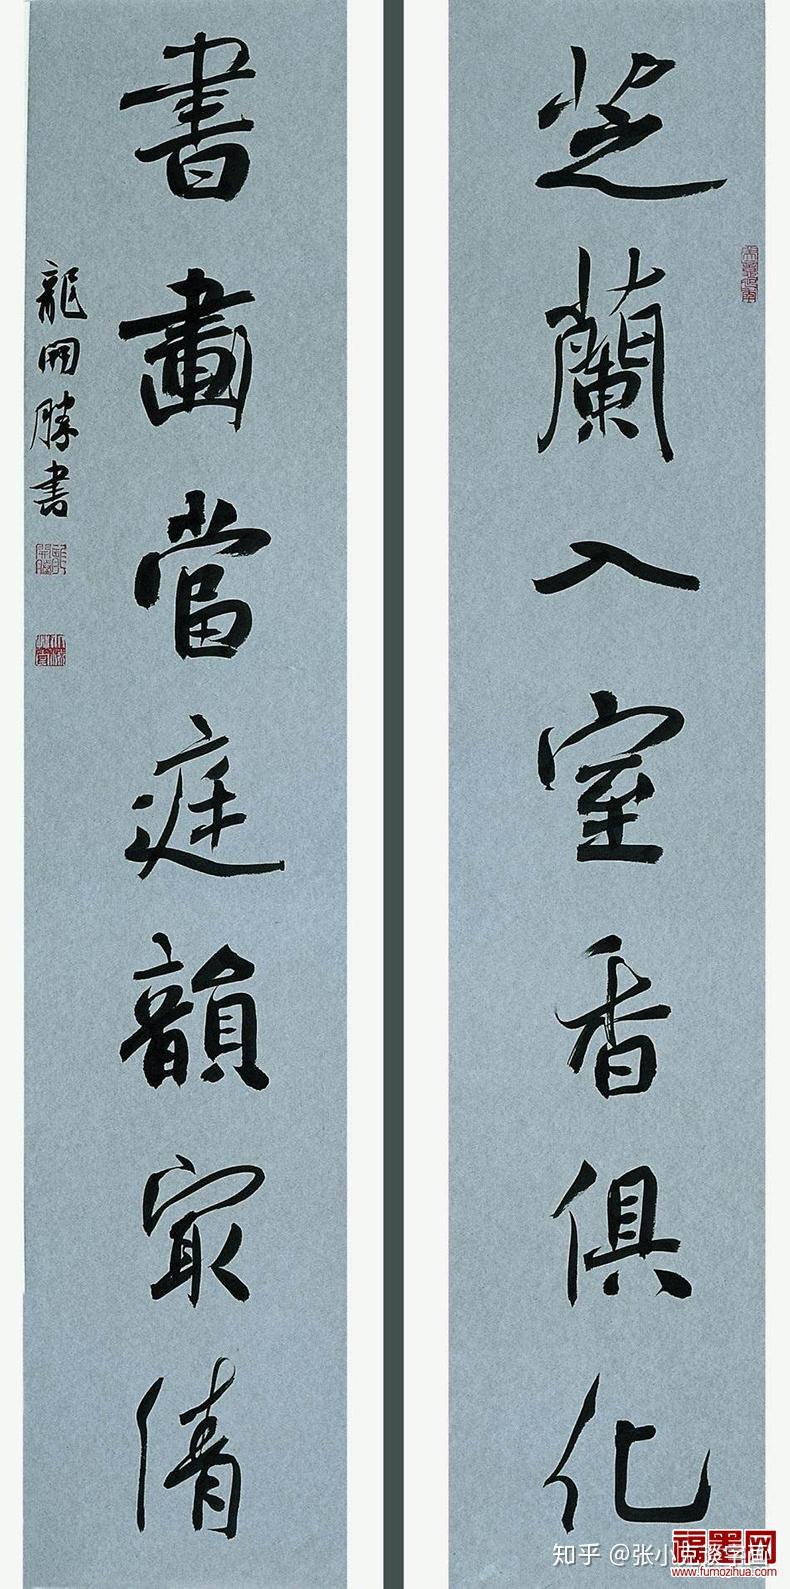 芝蘭入室香俱化
書畫當庭韻最倩
龍開勝書
知乎 @张小
福墨网
www.fumozihua.com